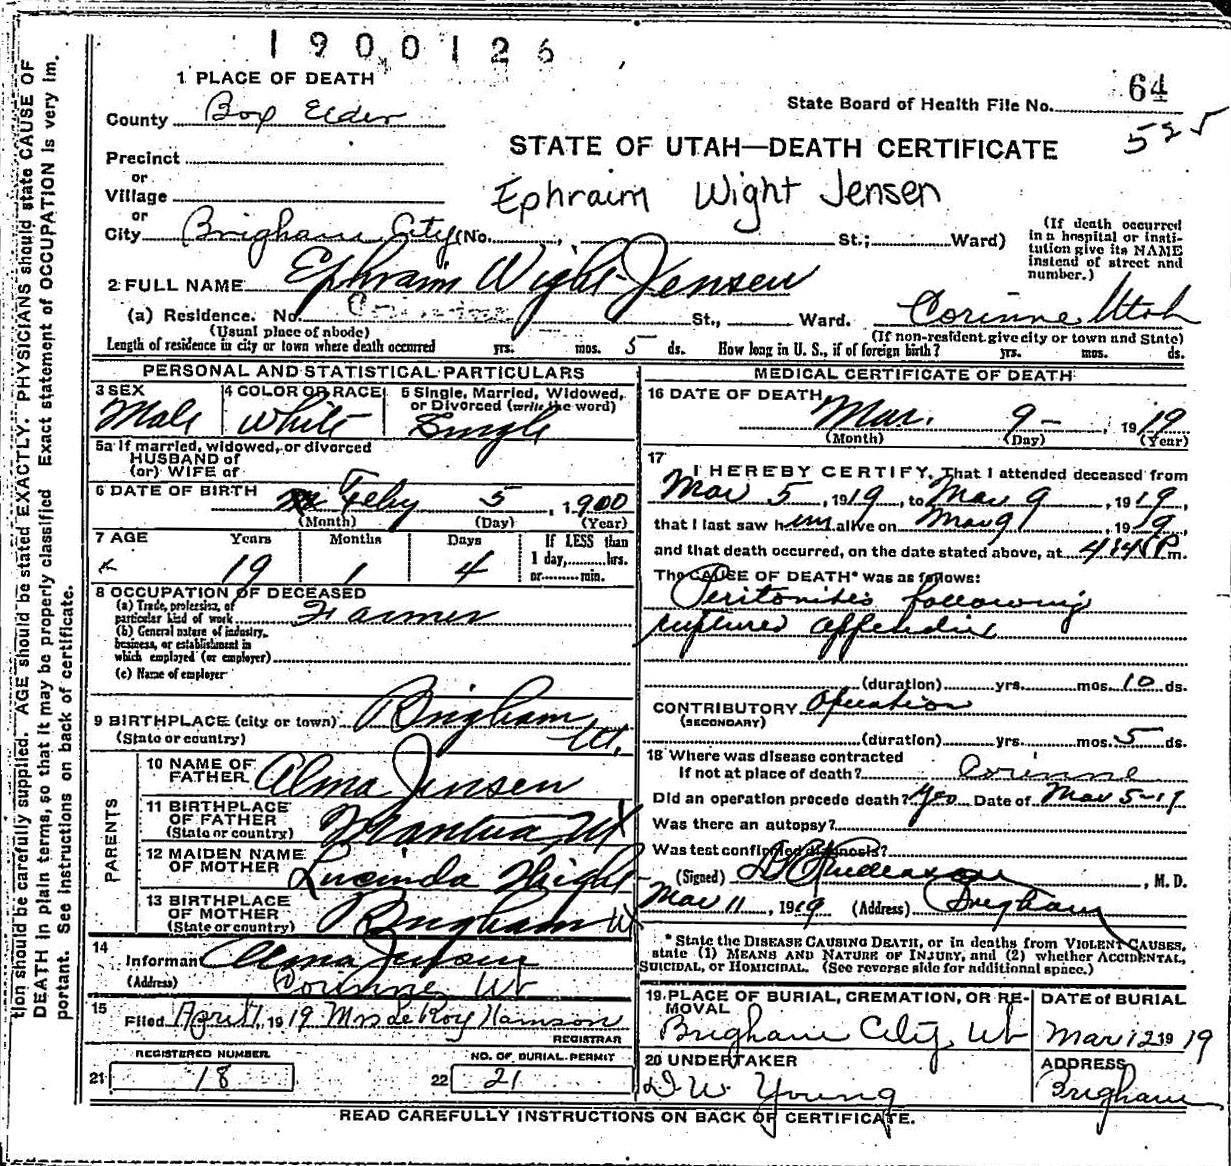 1900126
1 PLACE OF DEATH
64
State Board of Health File No.
County Box Elder
525
STATE OF UTAH—DEATH CERTIFICATE
Precinct
or
Village
Ephraim Wight Jensen
or
City Brigham City (No. , St.; Ward)
(If death occurred in a hospital or insti-
tution give its NAME
instead of street and
number.)
2 FULL NAME Ephraim Wight Jensen
(a) Residence. No. St., Ward. Corinne Utah
(Usual place of abode) (If non-resident give city or town and State)
Length of residence in city or town where death occurred yrs. mos. 5 ds. How long in U. S., if of foreign birth? yrs. mos. ds.
PERSONAL AND STATISTICAL PARTICULARS
3 SEX
Male
4 COLOR OR RACE
White
5 Single, Married, Widowed,
or Divorced (write the word)
Single
5a If married, widowed, or divorced
HUSBAND of
(or) WIFE of
6 DATE OF BIRTH Feby 5, 1900
(Month) (Day) (Year)
7 AGE Years Months Days If LESS than
1 day, hrs.
or min.
19 1 4
8 OCCUPATION OF DECEASED
(a) Trade, profession, or
particular kind of work Farmer
(b) General nature of industry,
business, or establishment in
which employed (or employer)
(c) Name of employer
9 BIRTHPLACE (city or town) Brigham
(State or country) Ut.
PARENTS
10 NAME OF
FATHER Alma Jensen
11 BIRTHPLACE
OF FATHER
(State or country) Mantua Ut
12 MAIDEN NAME
OF MOTHER Lucinda Wight
13 BIRTHPLACE
OF MOTHER
(State or country) Brigham Ut
14
Informan Alma Jensen
(Address) Corinne Ut
15
Filed April 1, 1919 Mrs de Roy Hamson
REGISTRAR
REGISTERED NUMBER
21 18
NO. OF BURIAL PERMIT
22 21
MEDICAL CERTIFICATE OF DEATH
16 DATE OF DEATH
Mar. 9 — , 1919
(Month) (Day) (Year)
17
I HEREBY CERTIFY, That I attended deceased from
Mar 5, 1919, to Mar 9, 1919,
that I last saw him alive on Mar 9, 1919,
and that death occurred, on the date stated above, at m.
The CAUSE OF DEATH* was as follows:
Peritonitis following
ruptured appendix
(duration) yrs. mos. 10 ds.
CONTRIBUTORY Operation
(SECONDARY)
(duration) yrs. mos. 5 ds.
18 Where was disease contracted
if not at place of death? Corinne
Did an operation precede death? Yes Date of Mar 5-19
Was there an autopsy?
Was test confirmed diagnosis?
(Signed) , M. D.
Mar 11, 1919 (Address) Brigham
* State the DISEASE CAUSING DEATH, or in deaths from VIOLENT CAUSES,
state (1) MEANS AND NATURE OF INJURY, and (2) whether ACCIDENTAL,
SUICIDAL, OR HOMICIDAL. (See reverse side for additional space.)
19 PLACE OF BURIAL, CREMATION, OR RE-
MOVAL
Brigham City, Ut
DATE of BURIAL
Mar 12 1919
20 UNDERTAKER
D. W. Young
ADDRESS
Brigham
READ CAREFULLY INSTRUCTIONS ON BACK OF CERTIFICATE.
tion should be carefully supplied. AGE should be stated EXACTLY. PHYSICIANS should state CAUSE OF
DEATH in plain terms, so that it may be properly classified. Exact statement of OCCUPATION is very im.
portant. See instructions on back of certificate.